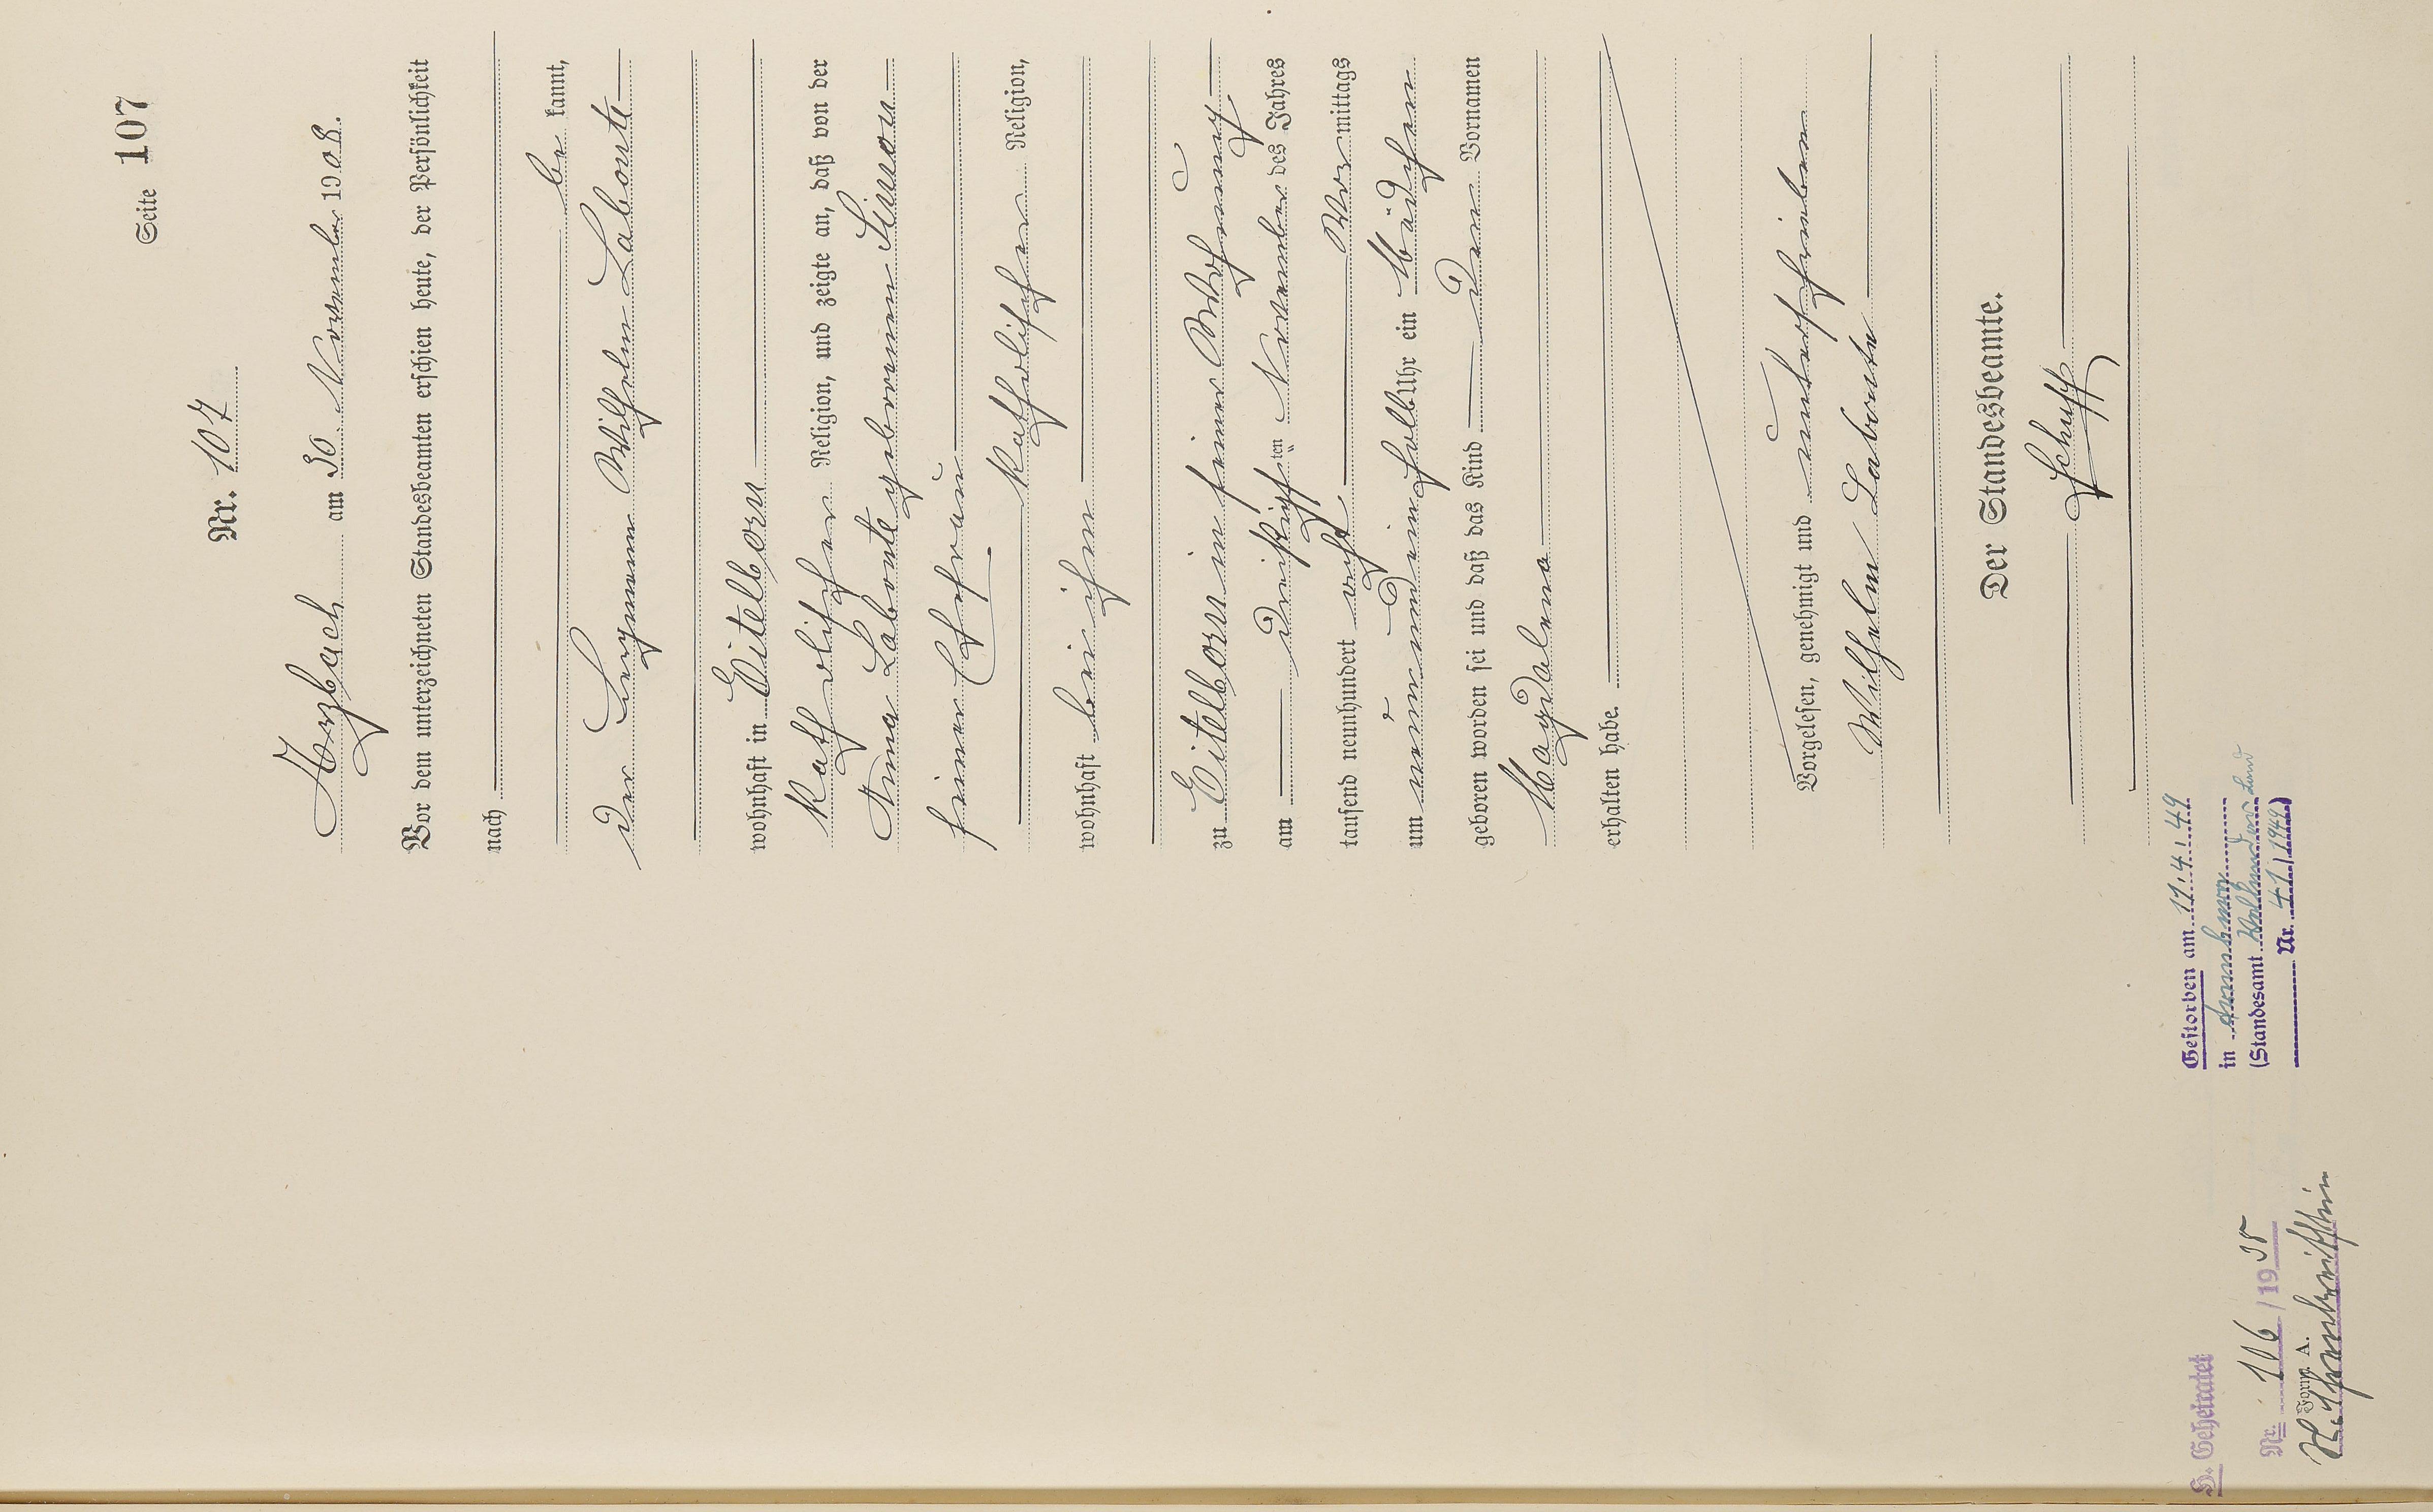 Seite 107
Nr. 107
Arzbach am 30. November 1908.
Vor dem unterzeichneten Standesbeamten erschien heute, der Persönlichkeit
nach
be kannt,
der Bergmann Wilhelm Labonte
wohnhaft in Eitelborn
katholischer Religion, und zeigte an, daß von der
Anna Labonte geborenen Simon
seiner Ehefrau
katholischer Religion,
wohnhaft bei ihm
zu Eitelborn in seiner Wohnung
am dreißigsten November des Jahres
tausend neunhundert acht Vormittags
um neun ein halb Uhr ein Mädchen
geboren worden sei und daß das Kind den Vornamen
Magdalena
erhalten habe.
Vorgelesen, genehmigt und unterschrieben
Wilhelm Labonte
Der Standesbeamte.
Schupp
Gestorben am 17.4.49
in
(Standesamt
Nr. 41/1949)
H. Geheiratet
Nr. 106/1935
Form. A.